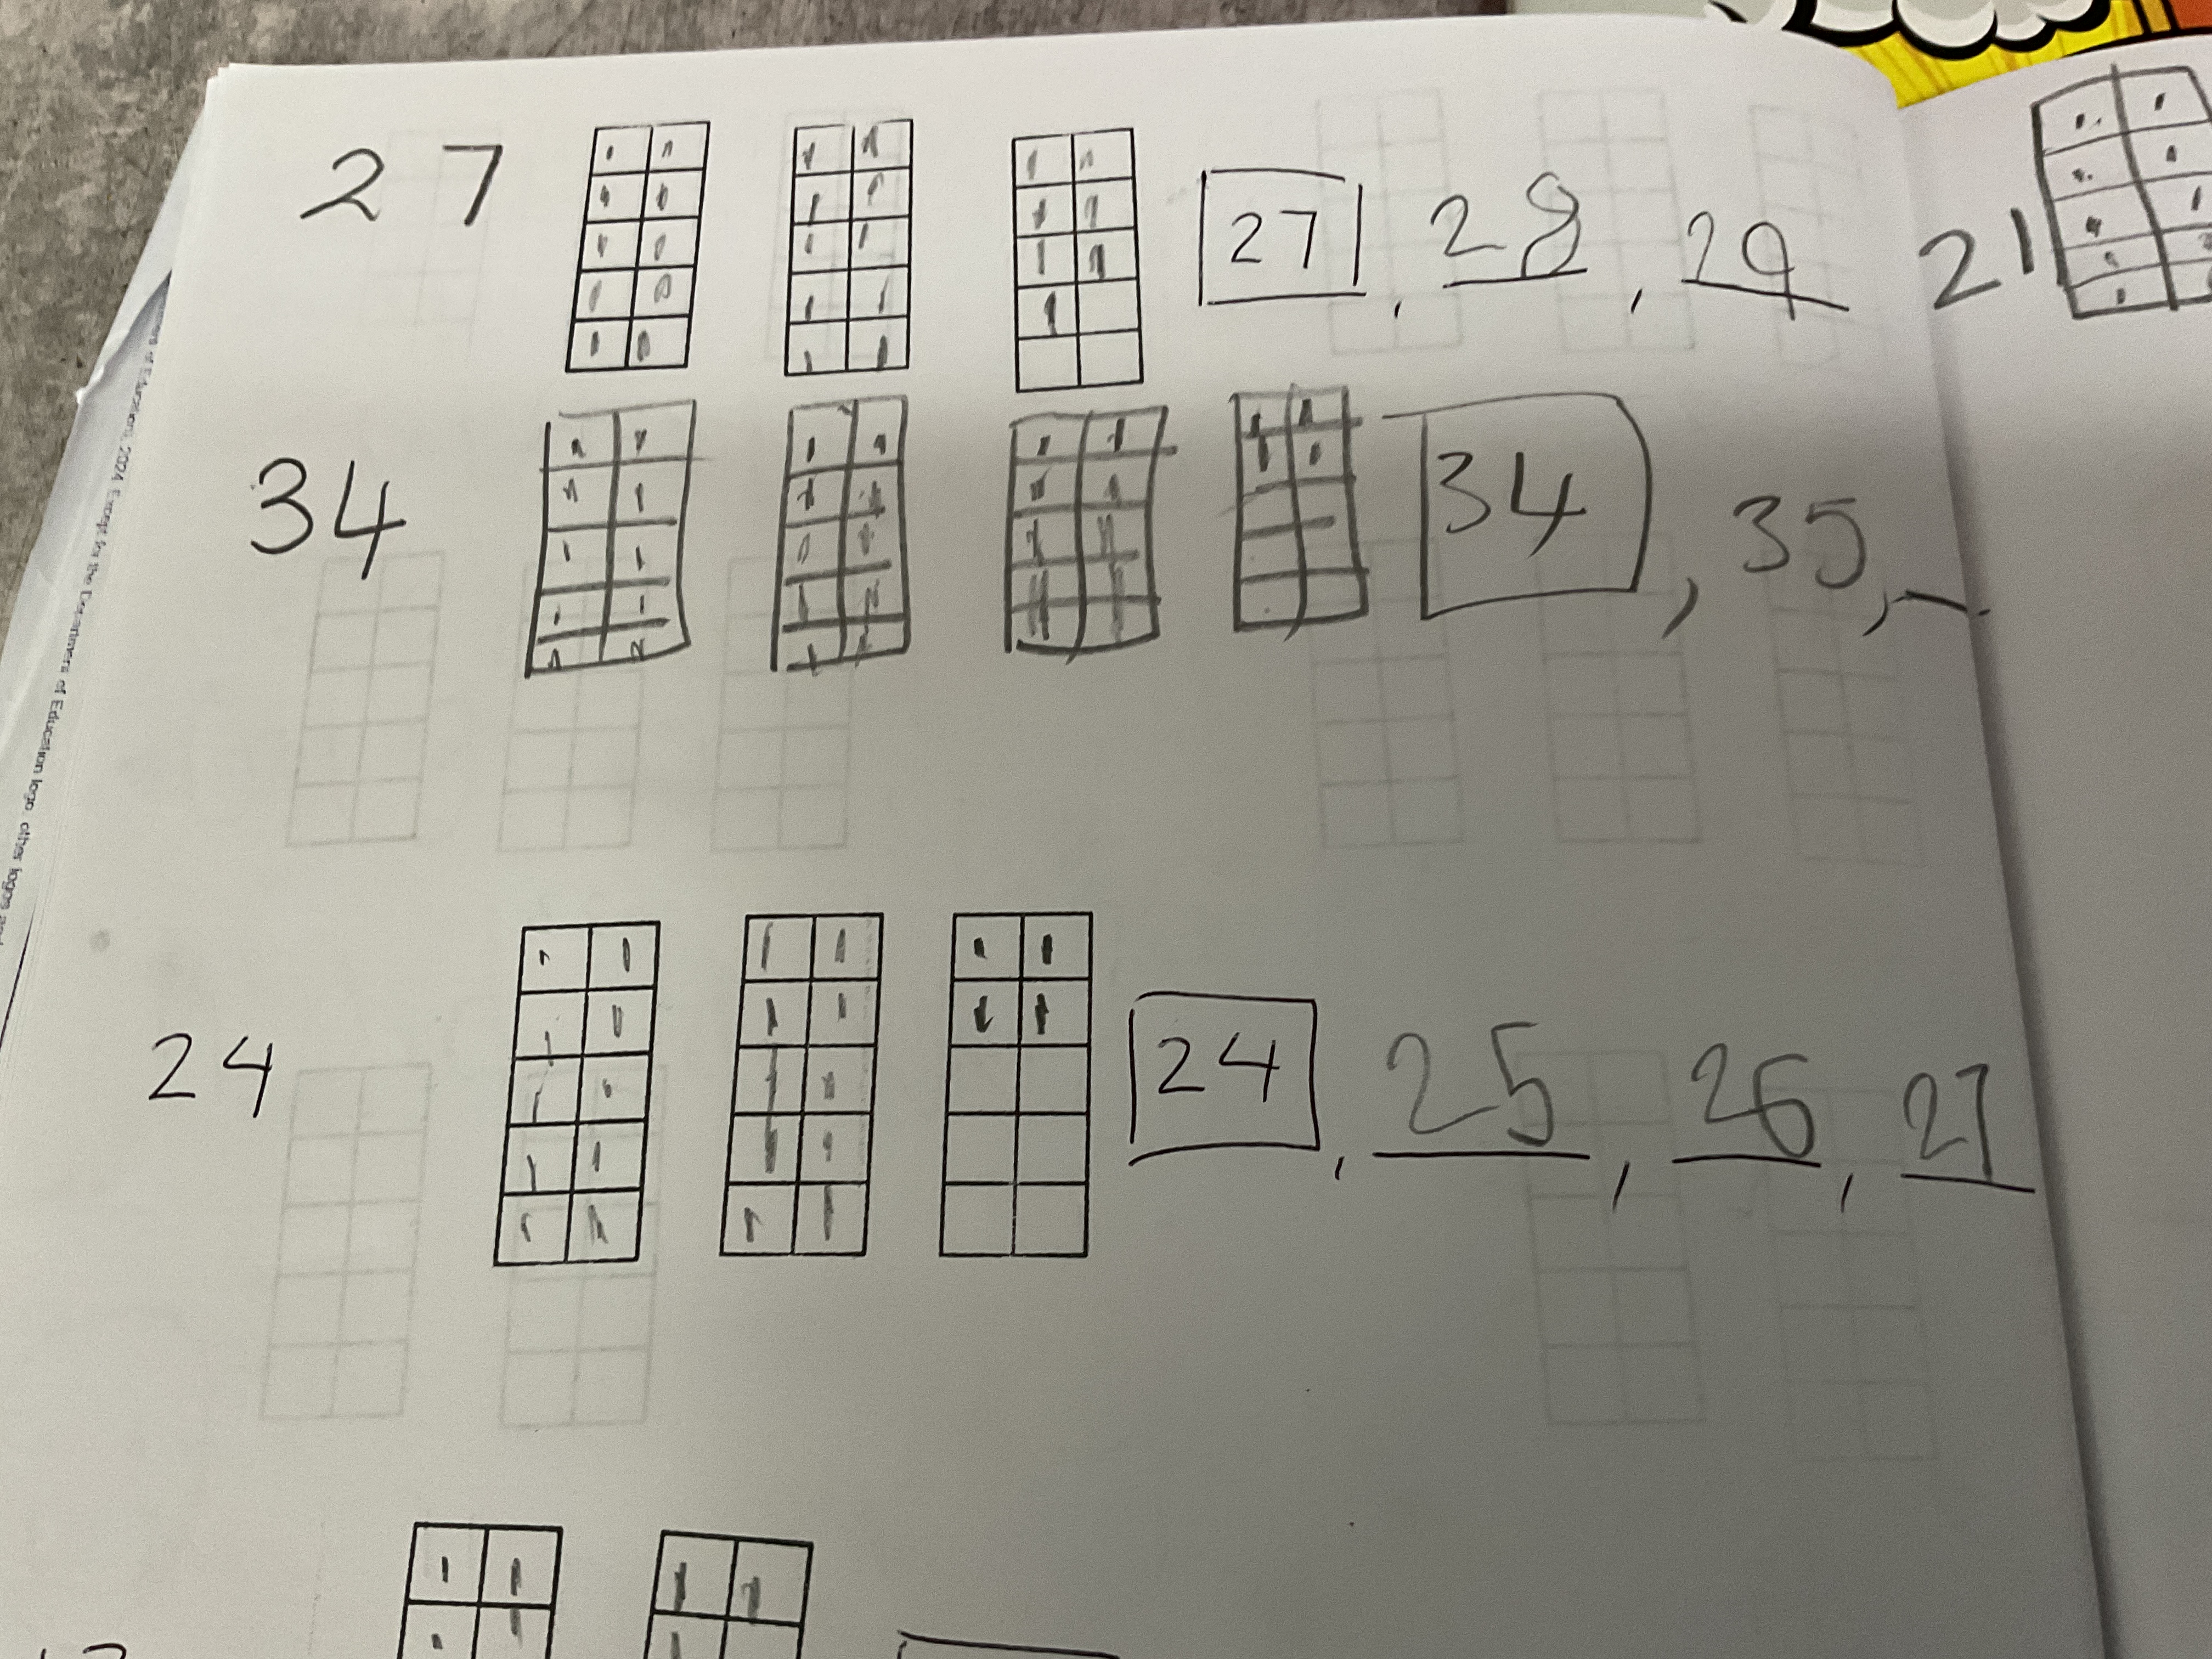 27 27, 28, 29 21
34 34, 35,
24 24, 25, 26, 27
of Education, 2024 Except for the Department of Education logo, other logos and